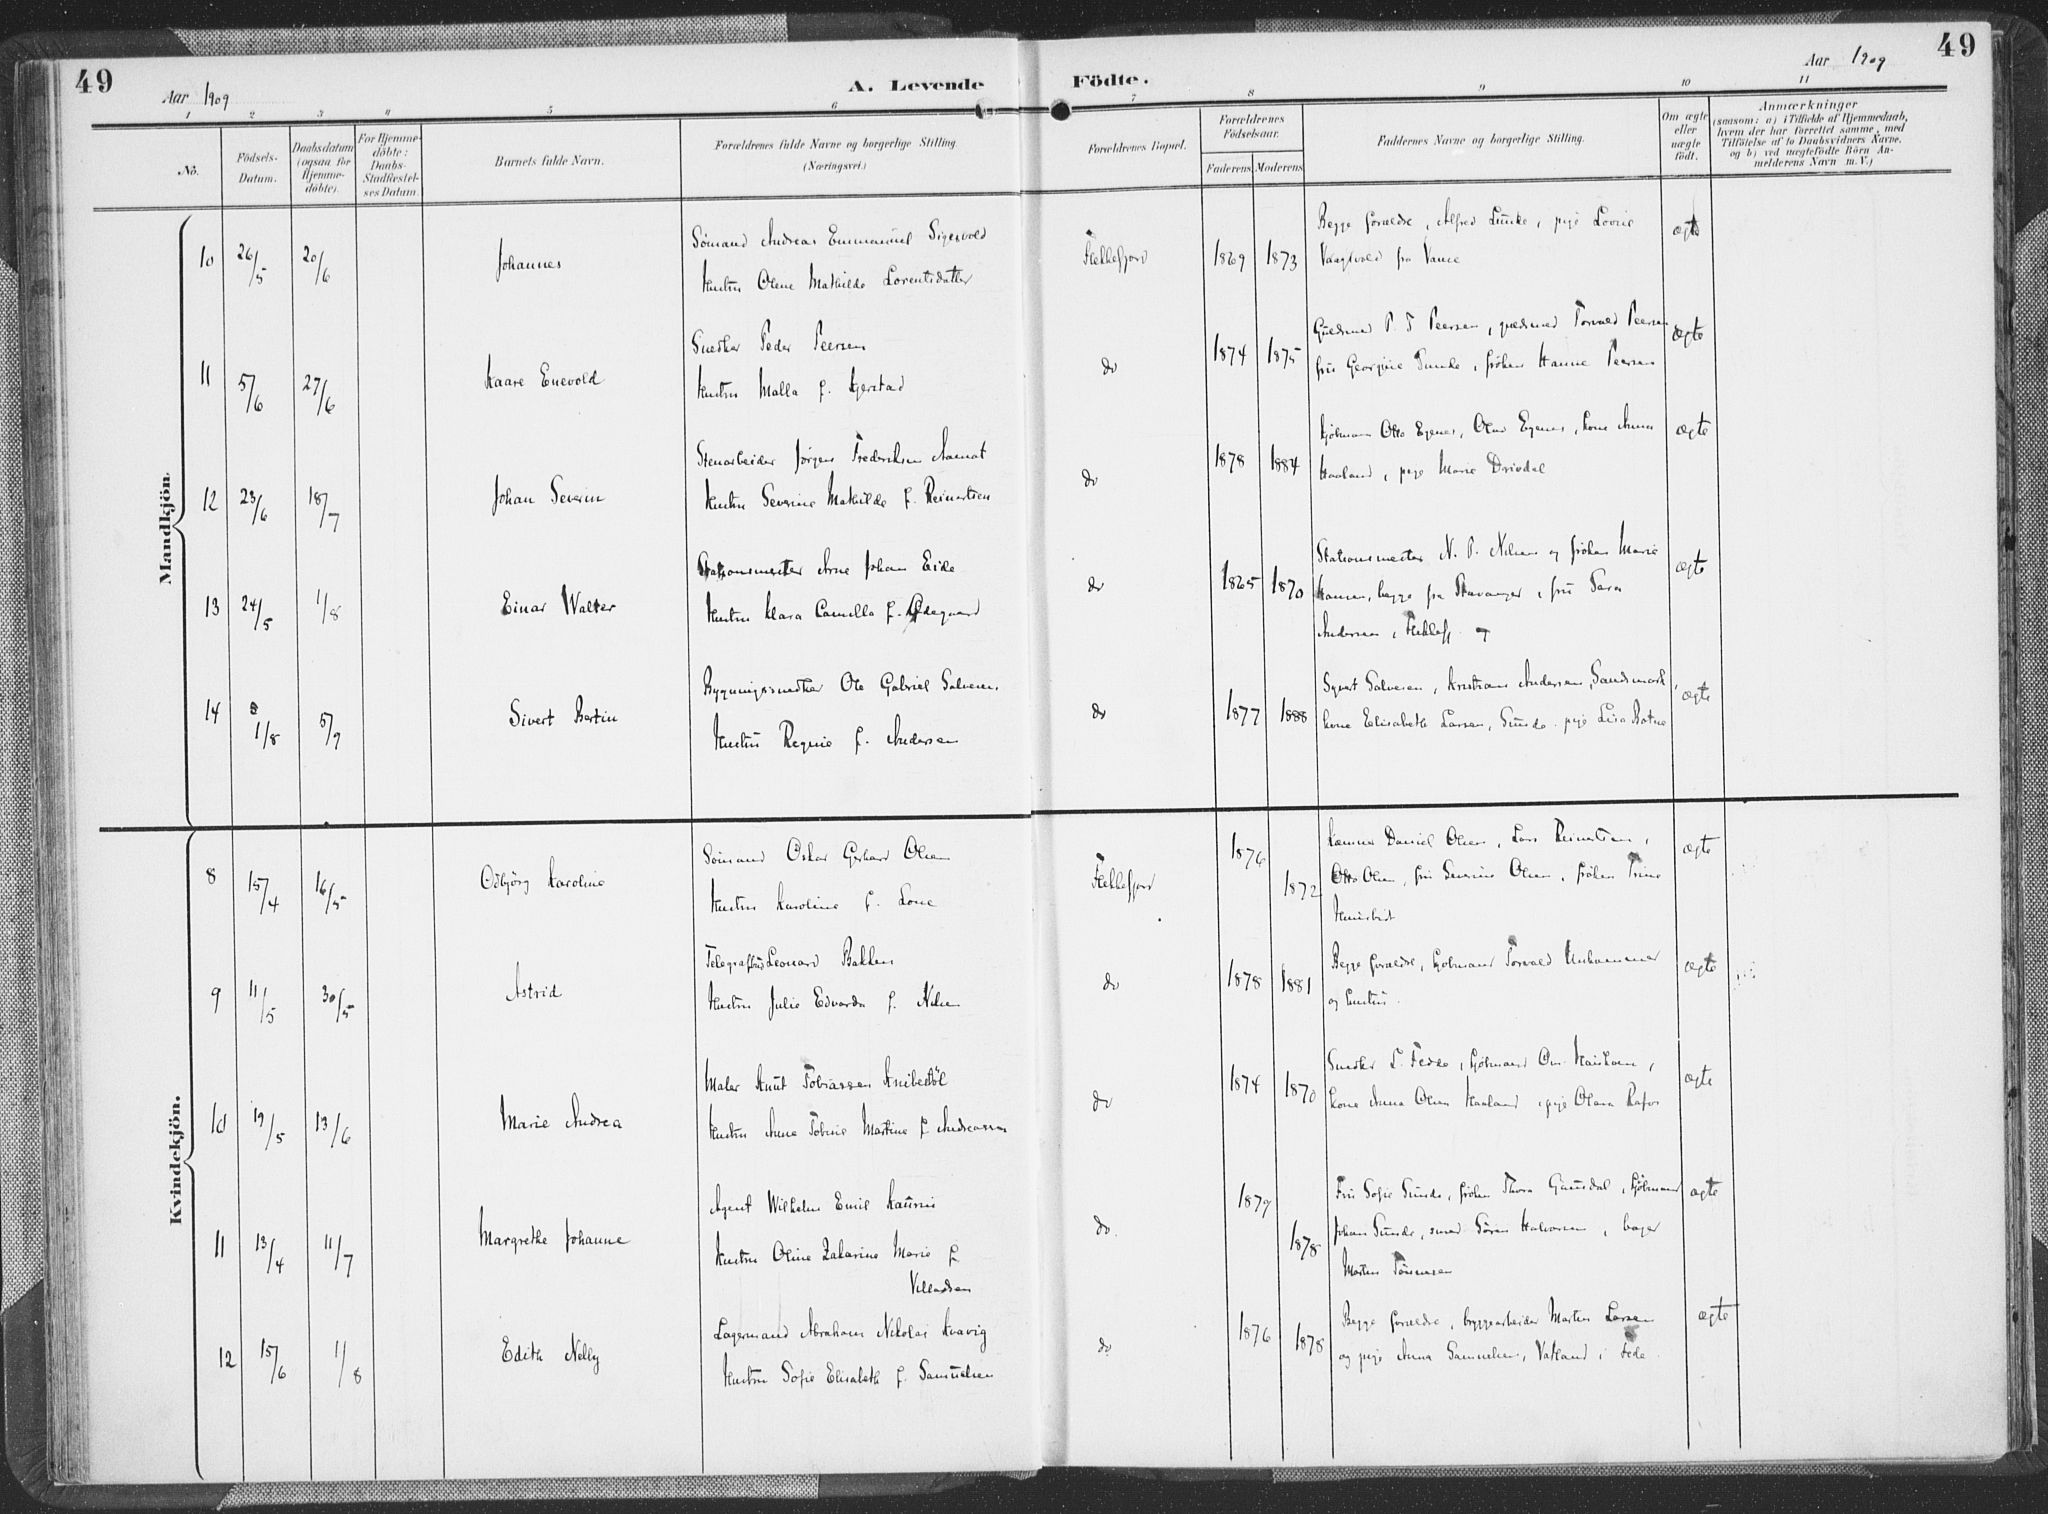 49
Aar 1909
A. Levende
Födte.
Aar 1909
49
1 2 3 4 5 6 7 8 9 10 11
No.
Födsels-
Datum.
Daabsdatum
(ogsaa for
Hjemme-
döbte).
For Hjemme-
döbte:
Daabs-
Stadfæstel-
ses Datum.
Barnets fulde Navn.
Forældrenes fulde Navne og borgerlige Stilling.
(Næringsvei.)
Forældrenes Bopæl.
Forældrenes
Födselsaar.
Faderens. Moderens.
Faddernes Navne og borgerlige Stilling.
Om ægte
eller
uægte
födt.
Anmærkninger
(saasom: a) i Tilfælde af Hjemmedaab,
hvem der har forrettet samme, med
Tilföielse af to Daabsvidners Navne,
og b) ved uægtefödte Börn An-
melderens Navn m. V.)
Mandkjön.
10 26/5 20/6 Johannes
Sömand Andreas Emmanuel Sigesvold
Hustru Olene Mathilde Lorentsdatter
Flekkefjord 1869 1873
Begge forældre, Alfred Lunde, pige Lovise
fra Vanse
ægte
11 5/6 27/6 Kaare Enevold
Snedker Peder Peersen
Hustru Malla f. Kjerstad
do 1874 1875
Guldsmed P T Peersen, guldsmed Torvald Peersen
fru Georgine Sunde, fröken Hanne Peersen
ægte
12 23/6 18/7 Johan Severin
Stenarbeider Jörgen Frederiksen Aamot
Hustru Severine Mathilde f. Reinertsen
do 1878 1884
Kjöbmann Otto Egenes, Olav Egenes, kone Anna
Haaland, pige Marie Drivdal
ægte
13 24/5 1/8 Einar Walter
Stationsmester Arne Johan Eide
Hustru Klara Camilla f. Ödegaard
do 1865 1870
Stationsmester N. P. Nilsen og fröken Marie
Hansen, begge fra Stavanger, fru Sara
Andersen, Flekkefj.
ægte
14 1/8 5/9 Sivert Bertin
Bygningssnedker Ole Gabriel Salvesen
Hustru Regine f. Andersen
do 1877 1888
Syvert Salvesen, Kristian Andersen, Sandsmark,
kone Elisabeth Larsen, Sunde, pige Lisa Botne
ægte
Kvindekjön.
8 15/4 16/5 Odbjörg Karoline
Sömand Oskar Gerhard Olsen
Hustru Karoline f. Lone
Flekkefjord 1876 1872
Kæmner Daniel Olsen, Lars Reinertsen,
Otto Olsen, fru Severine Olsen, fröken Trine
ægte
9 11/5 30/5 Astrid
Telegrafbud Leonard Bakken
Hustru Julie Edvarda f. Nilsen
do 1878 1881
Begge forældre, kjöbmand Torvald Unhammer
og hustru.
ægte
10 19/5 13/6 Marie Andrea
Maler Knut Tobiassen Knibestöl
Hustru Anne Tobine Martine f. Andreassen
do 1874 1870
Snedker L. Fedde, kjöbmand Om Hanisom,
kone Anna Olsen Haaland, pige Olava Rafos
ægte
11 13/4 11/7 Margrethe Johanne
Agent Wilhelm Emil Kaurin
Hustru Oline Zakarine Marie f
Villadsen
do. 1879 1878
Fru Sofie Sunde, fröken Thora Gausdal, kjöbmand
Johan Sunde, smed Sören Halvorsen, bager
Martin Tönnesen
ægte
12 15/6 1/8 Edith Nelly
Lagermand Abraham Nikolai Kvavig
Hustru Sofie Elisabeth f. Samuelsen
do. 1876 1878
Begge forældre, bryggearbeider Martin Larsen
og pige Anna Samuelsen, Vatland i Fede.
ægte